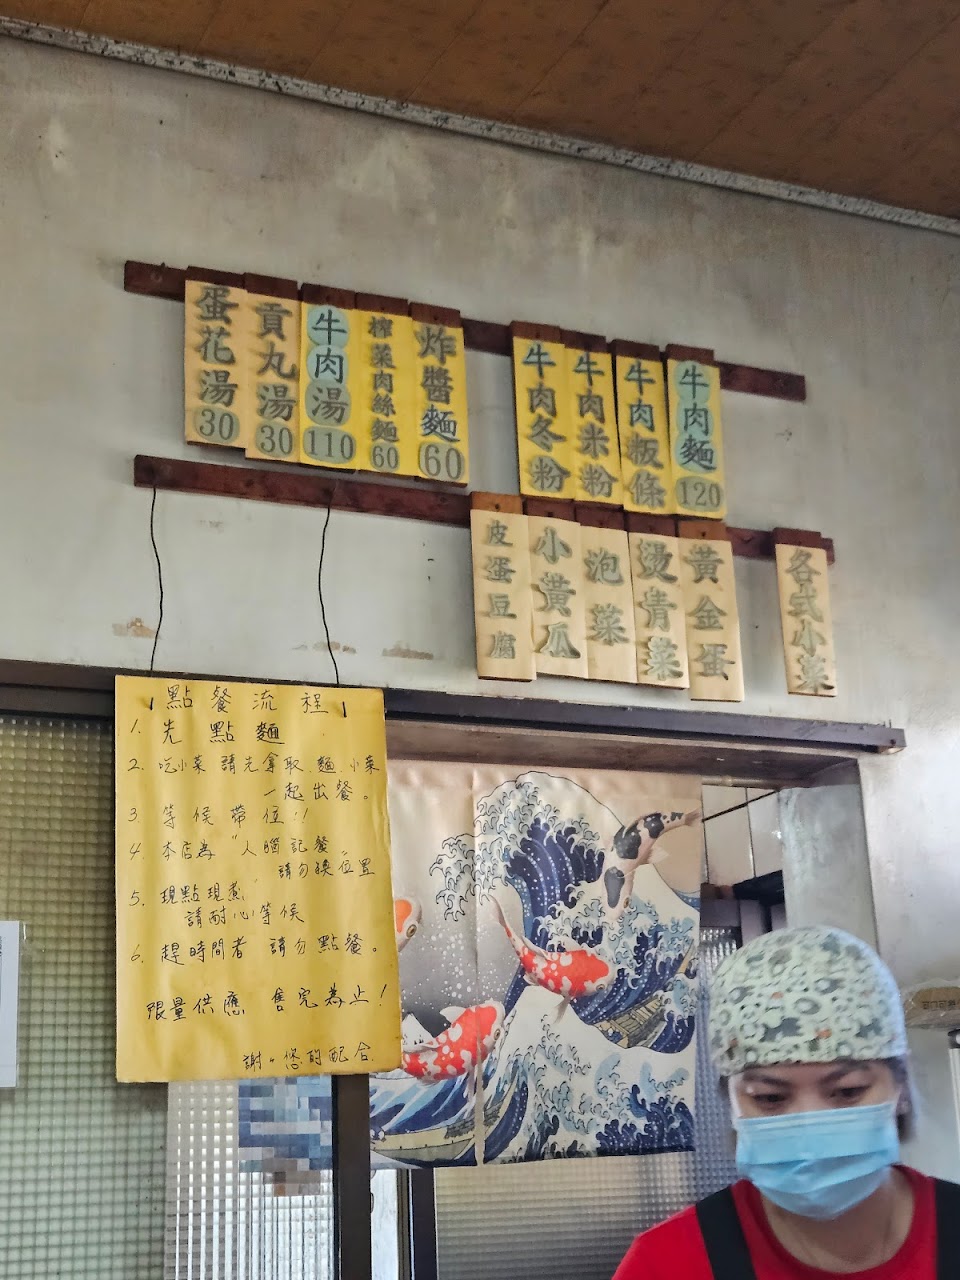 蛋花湯30
貢丸湯30
牛肉湯110
榨菜肉絲麵60
炸醬麵60
牛肉冬粉
牛肉米粉
牛肉粄條
牛肉麵120
皮蛋豆腐
小黃瓜
泡菜
燙青菜
黃金蛋
各式小菜
點餐流程
1. 先點麵
2. 吃小菜 請先拿取、麵、小菜
一起出餐。
3. 等候帶位!!
4. 本店為"人腦記餐"
請勿換位置
5. 現點現煮
請耐心等候
6. 趕時間者 請勿點餐。
限量供應 售完為止!
謝〃您的配合